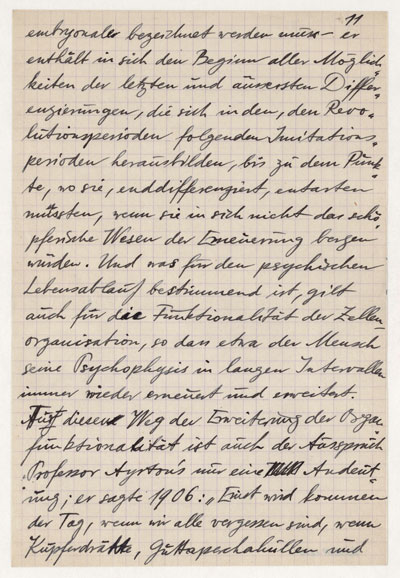 11
embryonaler bezeichnet werden muss – er
enthält in sich den Beginn aller Möglich„
keiten der letzten und äussersten Differ„
enzierungen, die sich in den, den Revo„
lutionsperioden folgenden Imitations„
perioden herausbilden, bis zu dem Punk„
te, wo sie, enddifferenziert, entarten
müssten, wenn sie in sich nicht das schö„
pferische Wesen der Erneuerung bergen
würden. Und was für den psychischen
Lebensablauf bestimmend ist, gilt
auch für die Funktionalität der Zellen„
organisation, so dass etwa der Mensch
seine Psychophysis in langen Intervallen
immer wieder erneuert und erweitert.
Auf diesem Weg der Erweiterung der Organ
funktionalität ist auch der Ausspruch
Professor Ayrtons nur eine Andeut„
ung; er sagte 1906: „Einst wird kommen
der Tag, wenn wir alle vergessen sind, wenn
Kupferdrähte, Guttaperchahüllen und